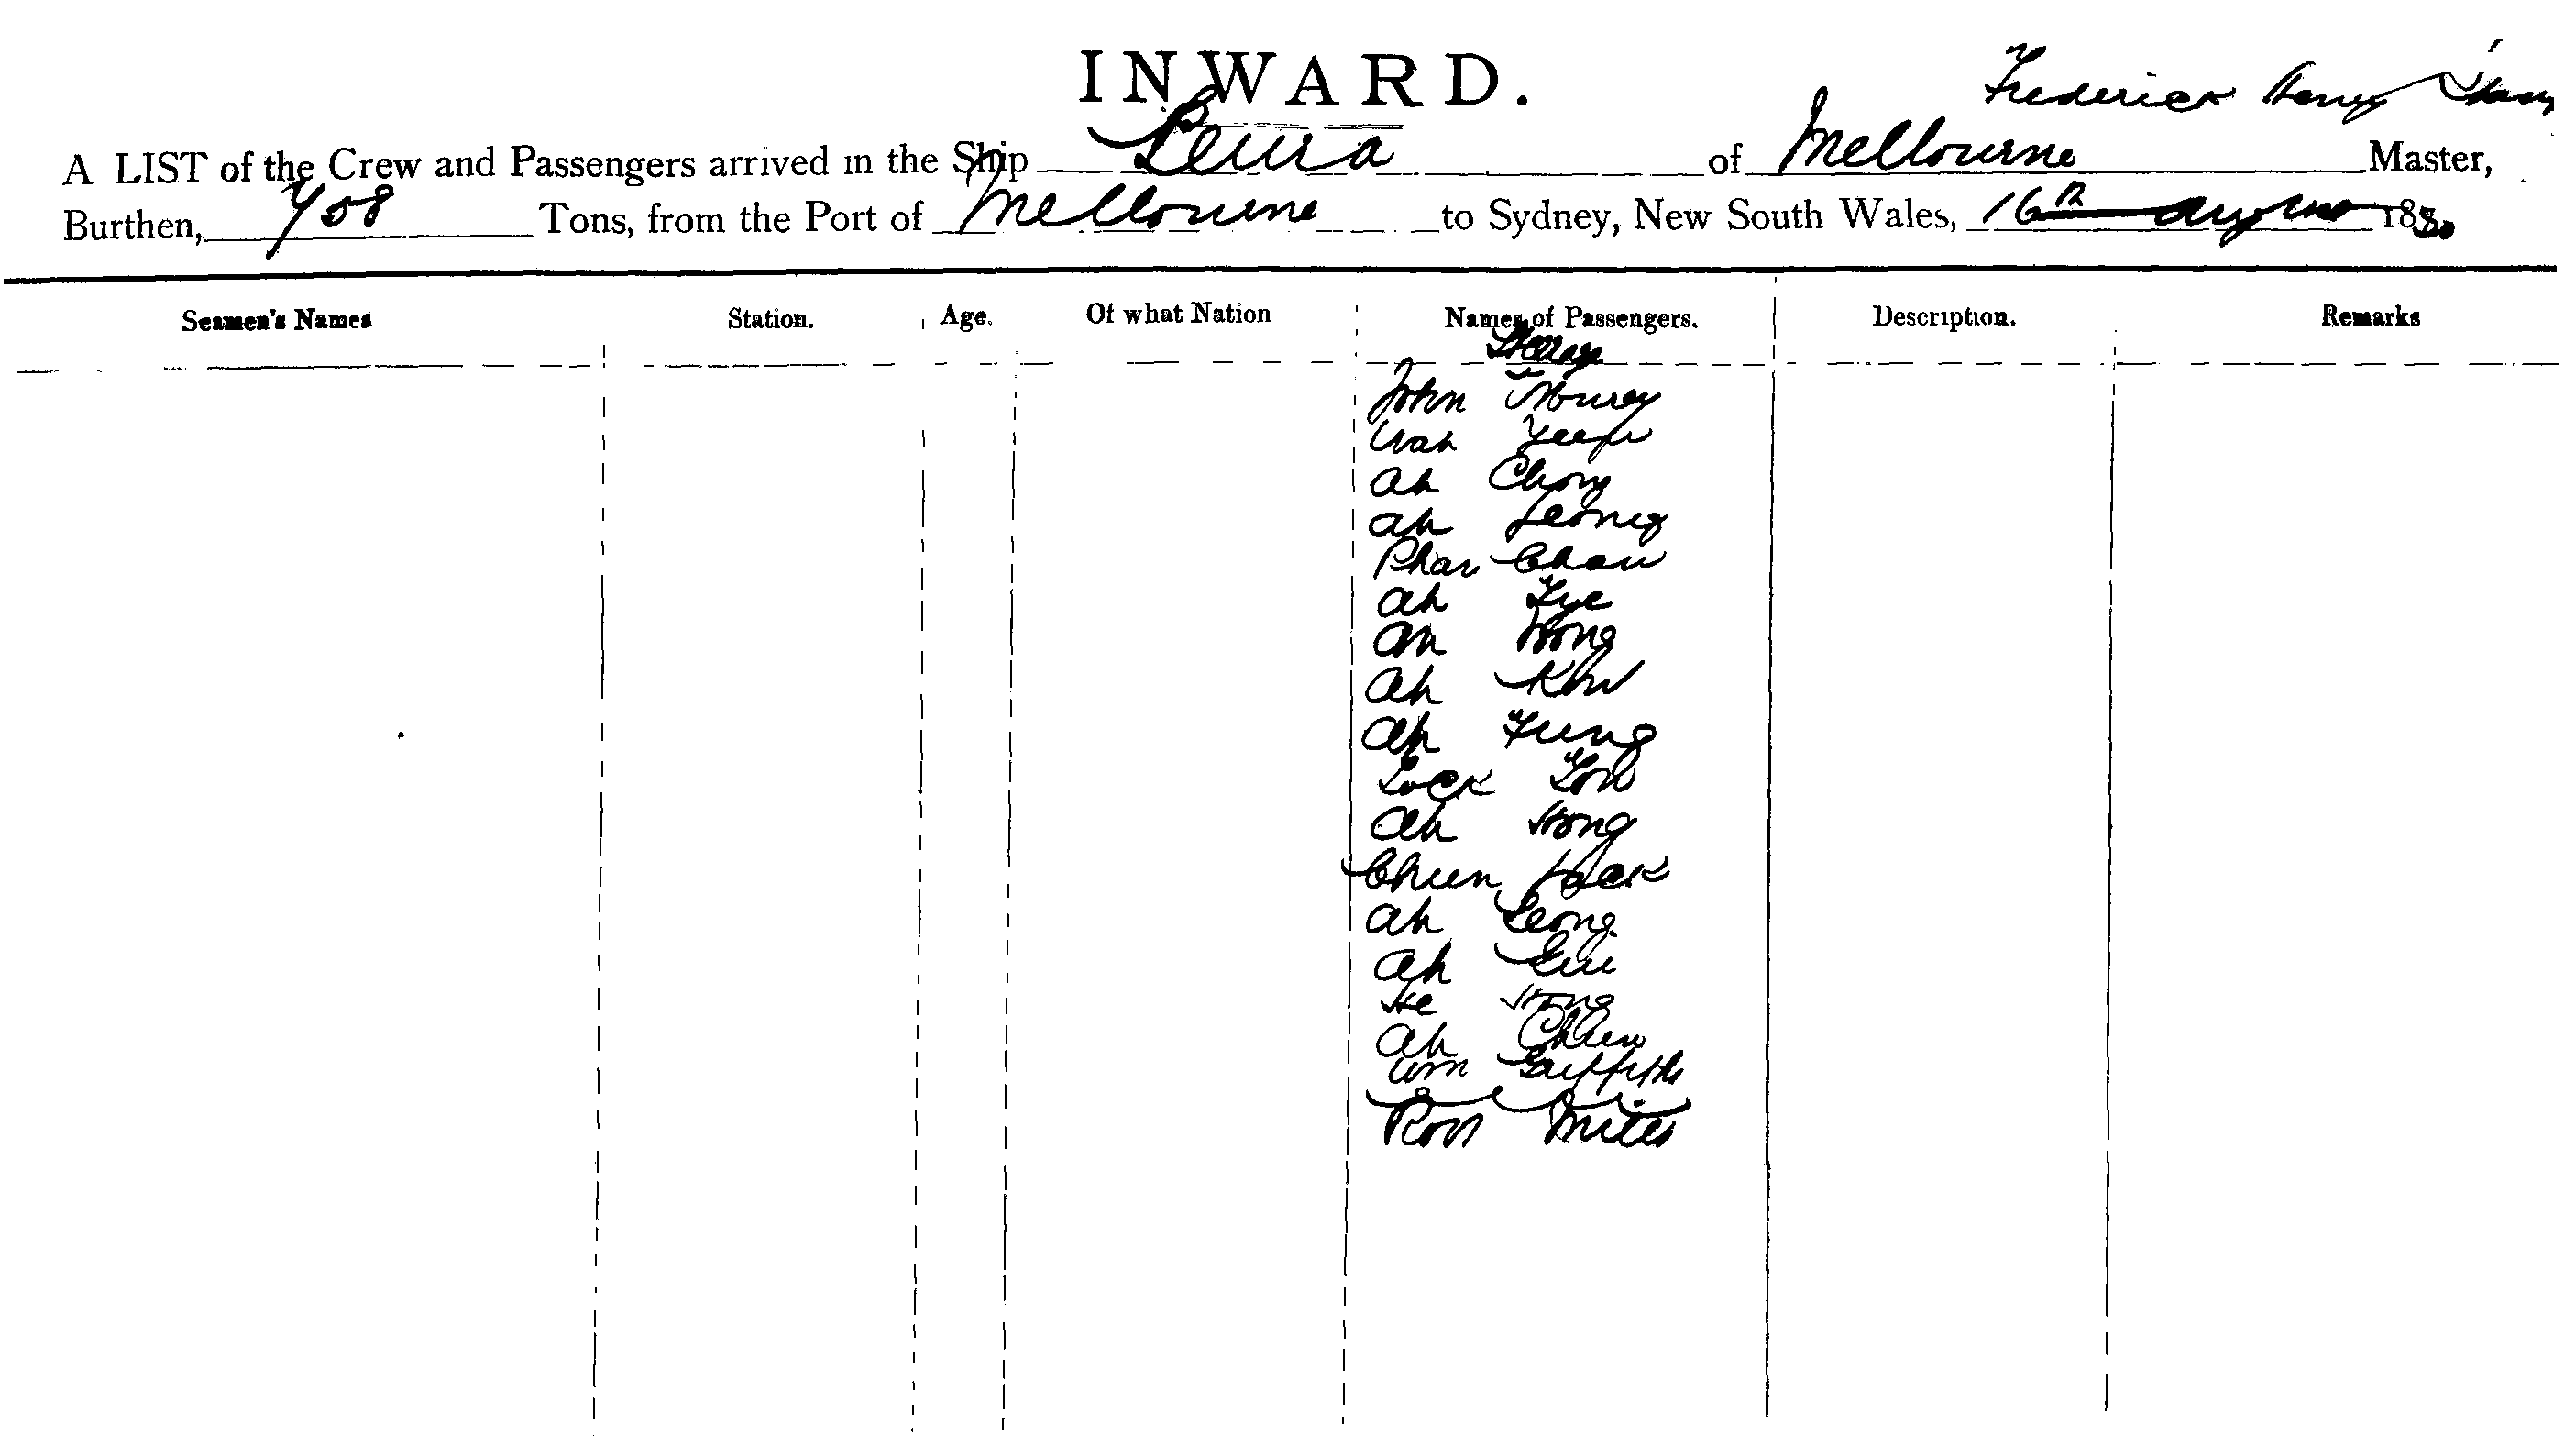 INWARD.
Frederick Henry
A LIST of the Crew and Passengers arrived in the Ship Leura of Melbourne Master,
Burthen, 708 Tons, from the Port of Melbourne to Sydney, New South Wales, 16th August 1880
Seamen's Names Station. Age. Of what Nation Names of Passengers. Description. Remarks
Steerage
John
Wah
Ah Chong
Ah Leong
Phar Chaw
Ah Fye
Ah Wong
Ah Kow
Ah Fung
Lock
Ah Hong
Chun Jack
Ah Leong
Ah
He Hong
Ah Chun
Wm Griffiths
Miles